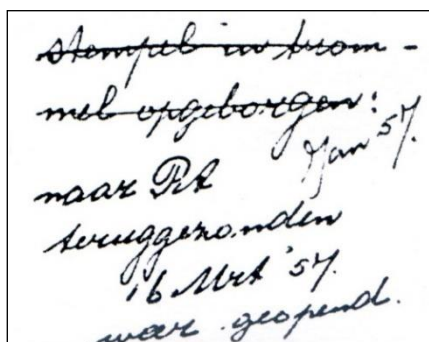 stempel in trom-
mel opgeborgen:
Jan 57.
naar Pst
teruggezonden
16 Mrt '57.
was geopend.